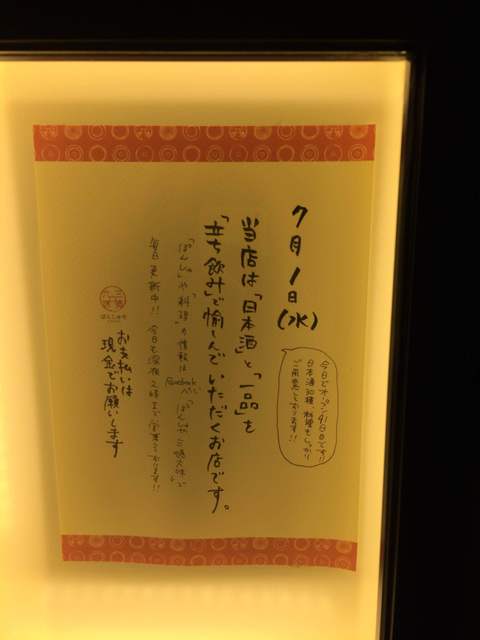 7月1日(水)
今日でオープン91日目です!!
日本酒30種、料理もしっかり
ご用意しております!!
当店は「日本酒」と「一品」を
「立ち飲み」で愉しんでいただくお店です。
「ぽんしゅ」や「料理」の情報は
Facebook
毎日更新中!! 今日も深夜2時まで営業しております!!
お支払いは
現金でお願いします